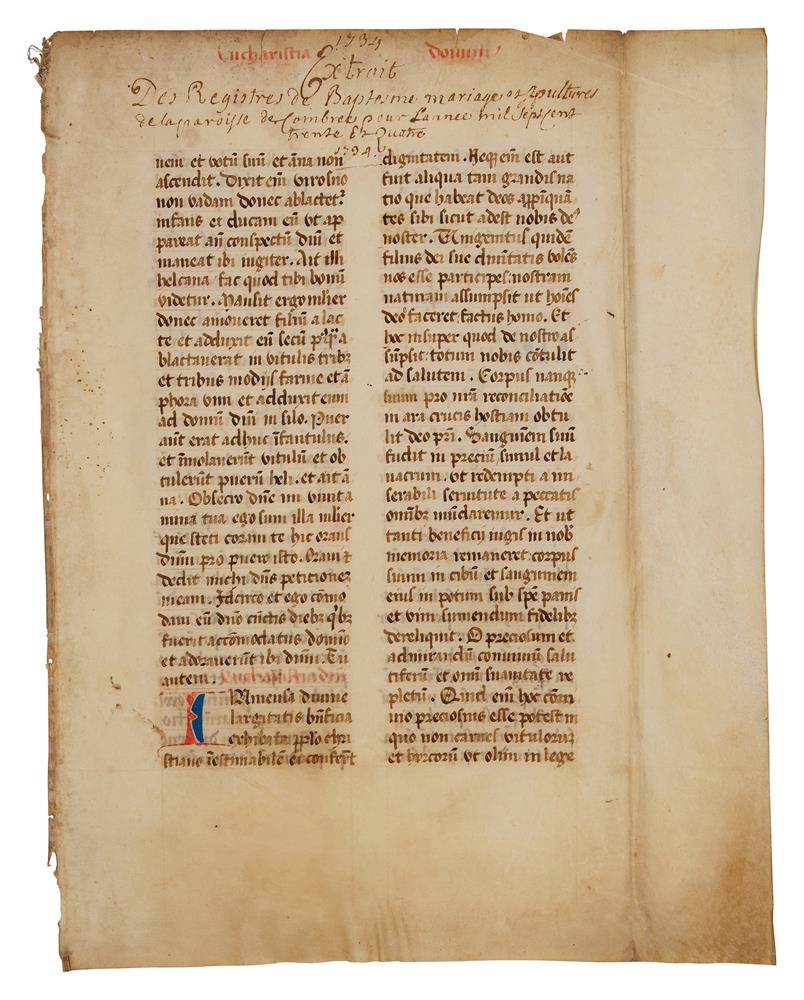 1734
Eucharistia domini
Extrait
Des Registres de Baptesme mariages et sepultures
de la paroisse de Combres pour Lannee mil Sept Cent
trente Et Quatre
1734.
uem et votū suū et āna non
ascendit. Dixit em̄ viro suo
non vadam donec ablactet᷑
infans et ducam eū vt ap
pareat an̄ conspectū dn̄i et
maneat ibi iugiter. Ait illi
helcana fac quod tibi bonū
videtur. Mansit ergo mulier
donec amoueret filiū a lac
te et adduxit eū secū
blactauerat in vitulis tribꝫ
et tribus modijs farine et ā
phora vini et adduxit eum
ad domū dn̄i in silo. Puer
aūt erat adhuc īfantulus.
et īmolauerūt vitulū et ob
tulerūt puerū heli. et ait ā
na. Obsecro dn̄e mi viuit a
nima tua ego sum illa mulier
que steti coram te hic orans
dn̄m pro puero isto. Oraui ⁊
dedit michi dn̄s petitionez
meam. Idcirco et ego cōmo
daui eū dn̄o cūctis diebꝫ qͥbꝫ
fuerit accōmodatus domīo
et adorauerūt ibi dn̄m. Tu
autem.
INmensa diuine
largitatis bn̄ficia
exhibita pplo chri
stiano īestimabilē ei confert
dignitatem. Neqꝫ em̄ est aut
fuit aliqua tam grandis na
tio que habeat deos appīqua
tes sibi sicut adest nobis deꝰ
noster. Unigenitus quidē
filius dei sue diuitatis volēs
nos esse participes: nostram
naturam assumpsit ut hoīes
deos faceret factus homo. Et
hoc insuper quod de nostro as
sūpsit: totum nobis cōtulit
ad salutem. Corpus nanqꝫ
suum pro nr̄a reconciliatiōe
in ara crucis hostiam obtu
lit deo pr̄i. Sanguinem suū
fudit in preciū simul et la
uacrum. vt redempti a mi
serabili seruitute a peccatis
omībꝫ mūdaremur. Et ut
tanti beneficij iugis in nobꝭ
memoria remaneret: corpus
suum in cibū et sanguinem
eius in potum sub spē panis
et vini sumendum fidelibꝫ
dereliquit. O preciosum et
admirandū conuiuiū salu
tiferū et omī suauitate re
pletū. Quid em̄ hoc cōui
uio preciosius esse potest in
quo non carnes vitulorum
et hyrcorū vt olim in lege